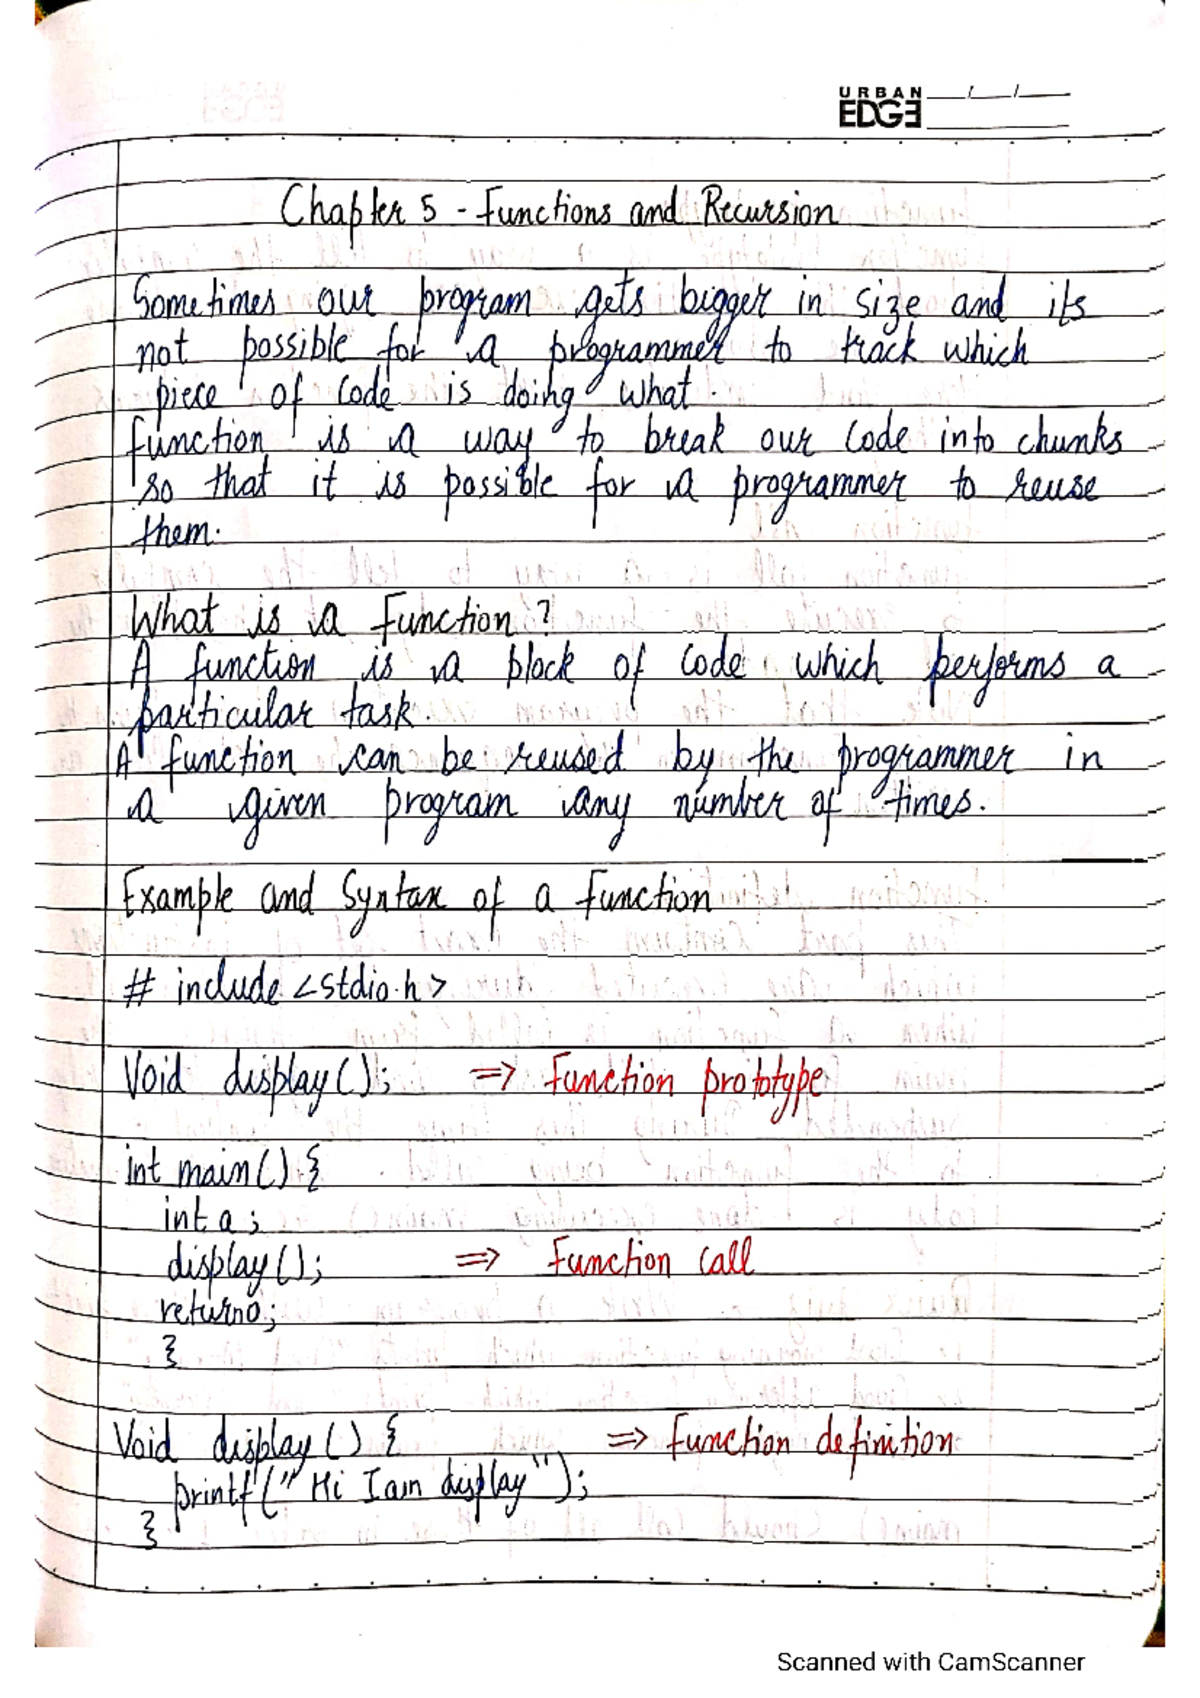 URBAN
EDGE
Chapter 5 - Functions and Recursion
Sometimes our program gets bigger in size and its
not possible for a programmer to track which
piece of code is doing what.
function is a way to break our code into chunks
so that it is possible for a programmer to reuse
them.
What is a Function?
A function is a block of code which performs a
particular task.
A function can be reused by the programmer in
a given program any number of times.
Example and Syntax of a Function
# include <stdio.h>
Void display(); => Function prototype
int main() {
int a;
display(); => Function call
return0;
}
Void display() { => Function definition
printf(" Hi I am display");
}
Scanned with CamScanner